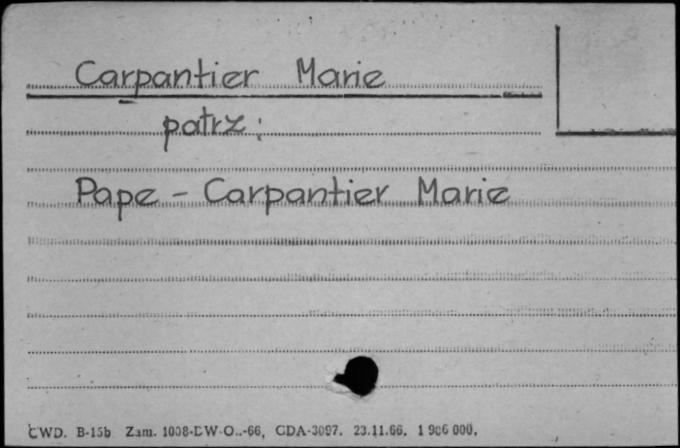 Carpantier Marie
patrz:
Pape - Carpantier Marie
CWD. B-15b Zam. 1008-DW-O..-66, GDA-3097. 23.11.66. 1 986 000.